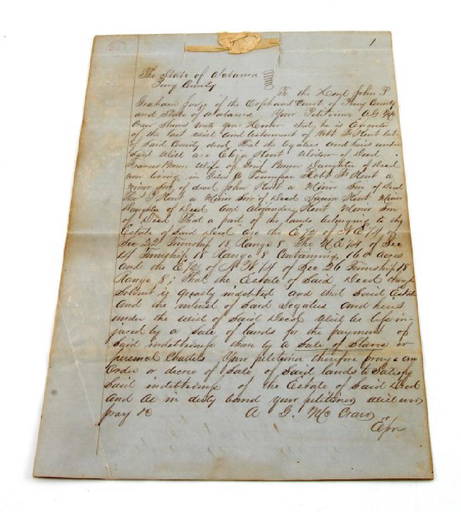 1
The State of Alabama
Perry County
To the Honl John P
Graham Judge of the Orphans Court of Perry County
and State of Alabama Your Petitioner A G Mc
Craw Shows unto your Honor that he is Executor
of the last will and testament of Robt Hunt late
of Said County decd That the legatees and heirs under
Said Will are Eliza Hunt Widow of Decd
Frances wife of Daughter of decd
now living in Robt Hunt a
Minor Son of decd John Hunt a Minor Son of Decd
Hunt a Minor Son of Decd Hunt Minor
Daughter of Decd and Alexander Hunt Minor Son
of Decd That a part of the lands belonging to the
Estate of Said Decd are the E ½ of N E ¼ of
Sec 22 Township 18 Range 8 The N E ¼ of Sec
14 Township 18 Range 8 Containing 160 acres
and the E ½ of N W ¼ of Sec 26 Township 18
Range 8; That the Estate of Said Decd
is greatly indebted and that Said Estate
and the interest of Said Legatees and heirs
under the will of Said Decd will be less in-
jured by a Sale of lands for the payment of
Said indebtedness than by a Sale of Slaves or
personal Chattels Your petitioner therefore prays an
Order or decree of Sale of Said lands to Satisfy
Said indebtedness of the Estate of Said Decd
and as in duty bound your petitioner will ever
pray &c A G. McCraw
Exr